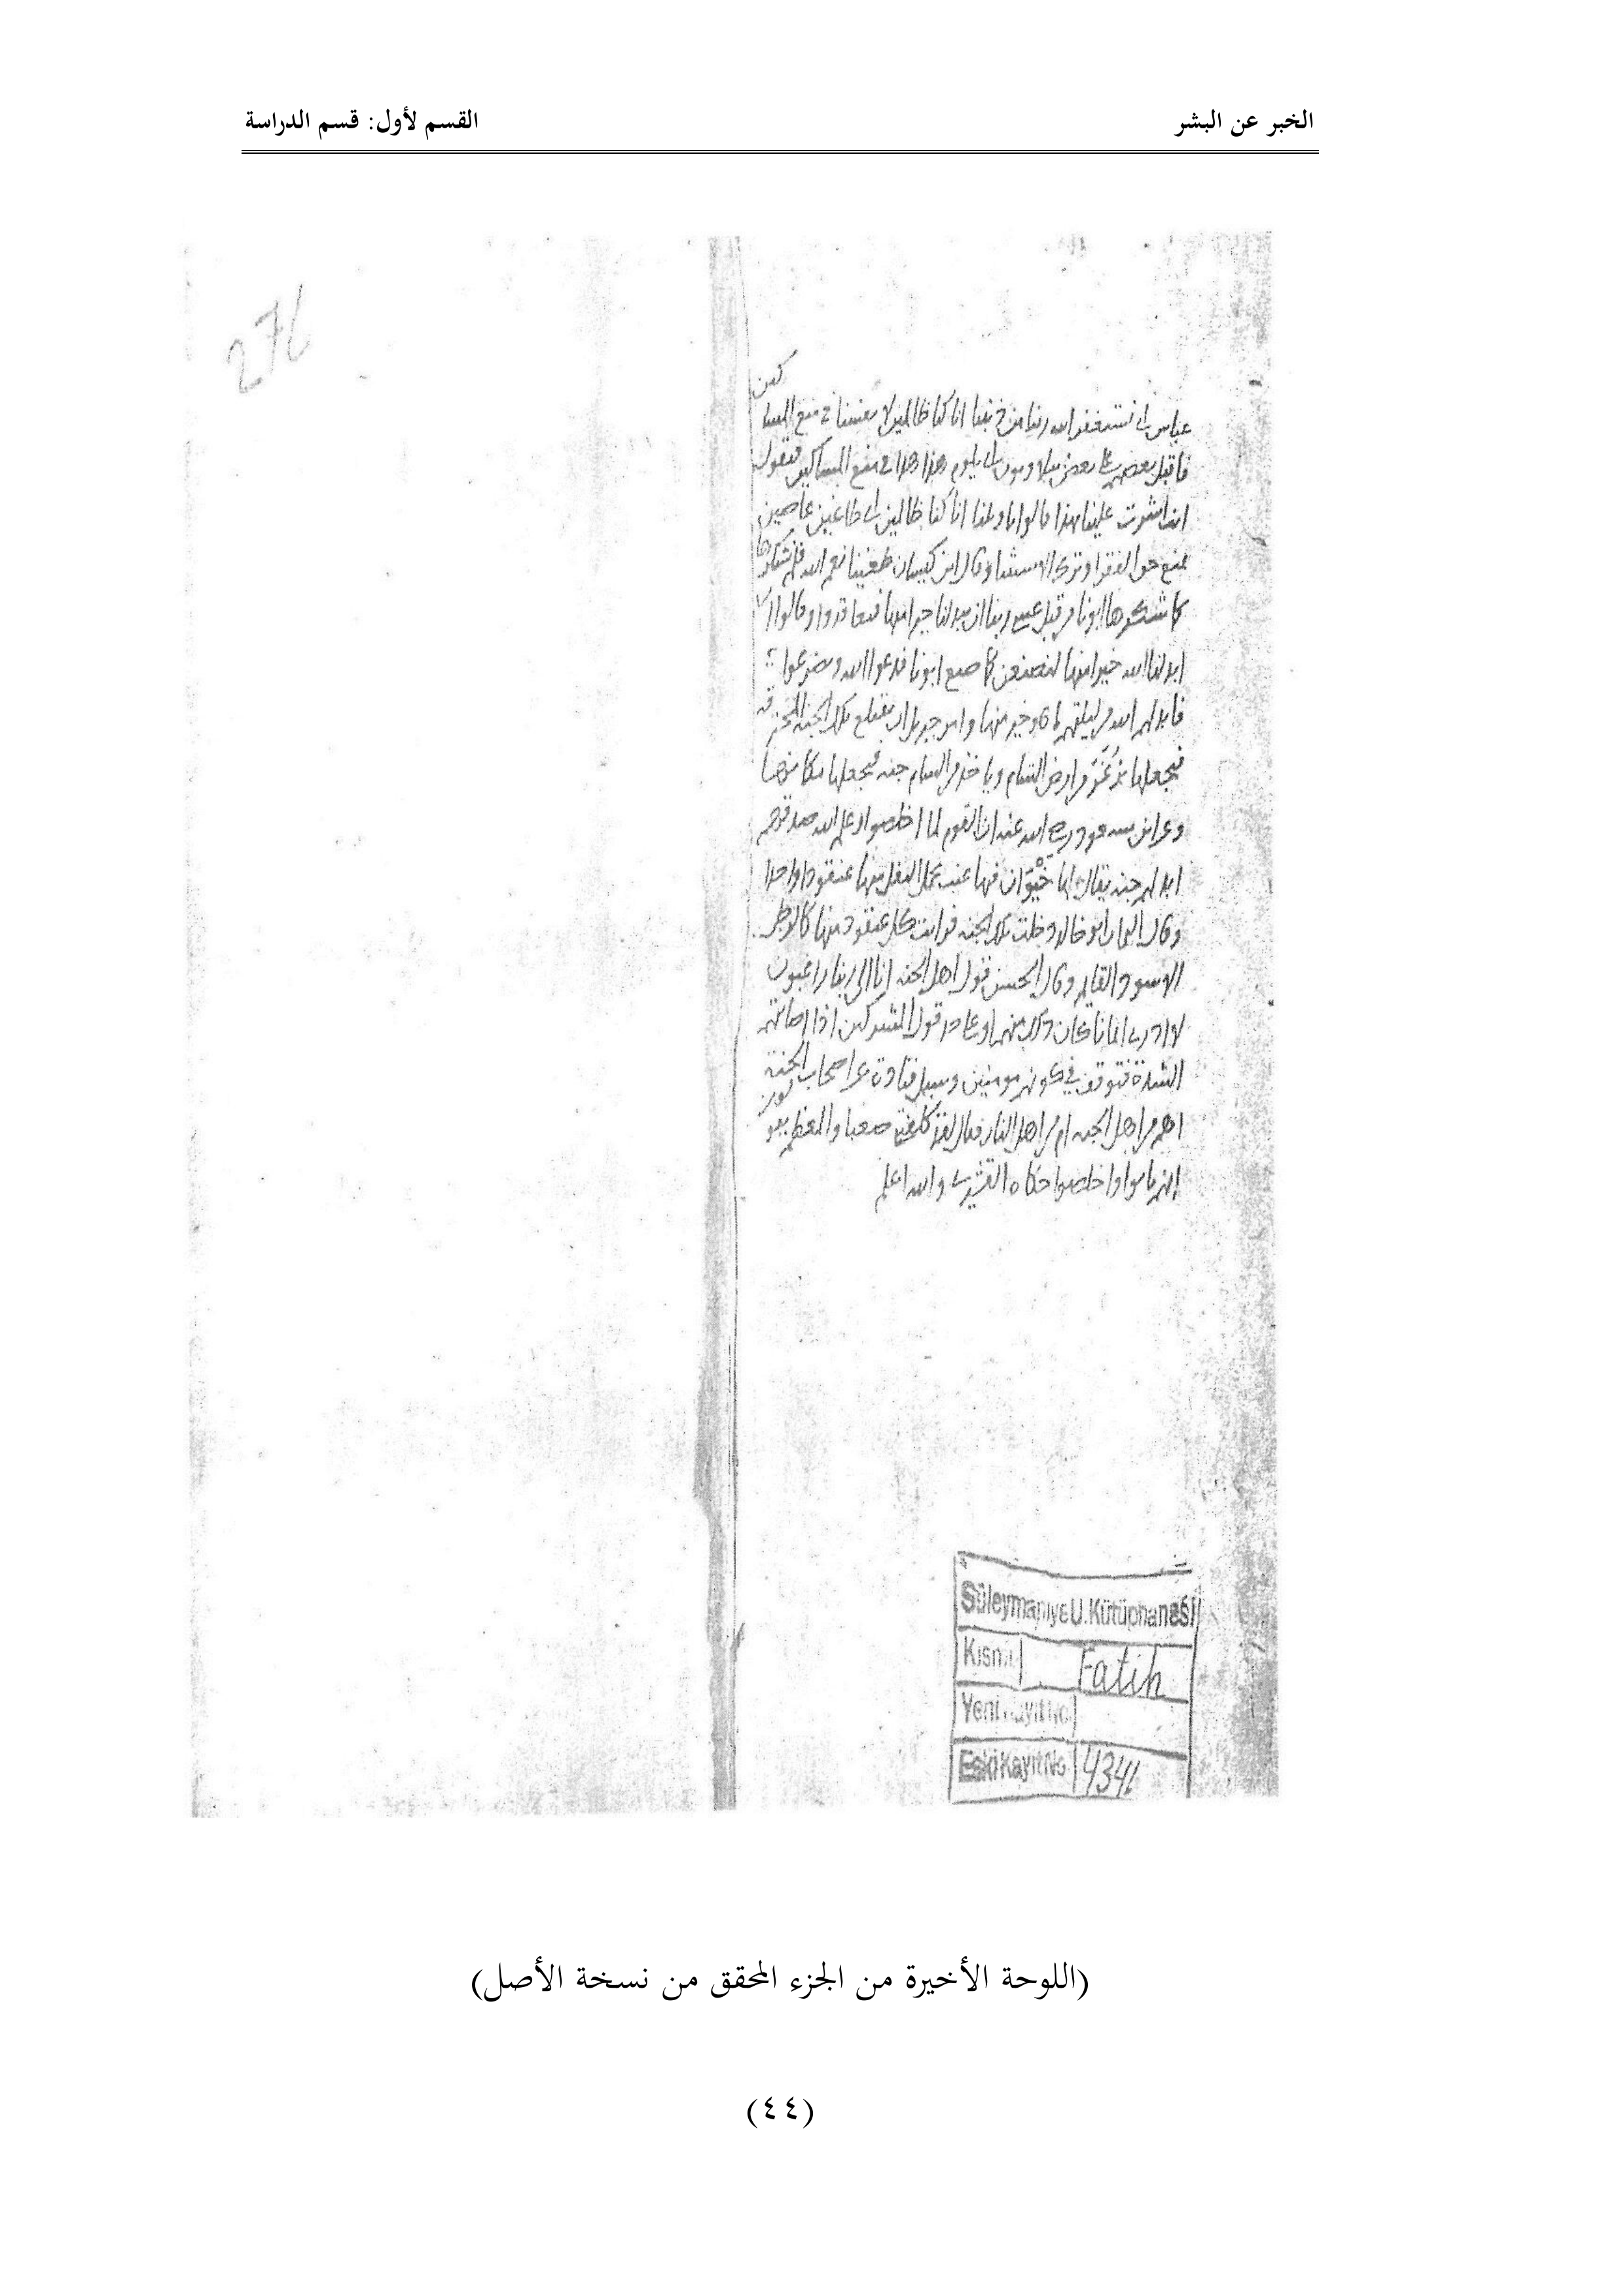 الخبر عن البشر
القسم لأول: قسم الدراسة
276
كين
عباس اى نستغفر الله ربنا من ذنبنا انا كنا ظالمين لا نفسنا فى منع المسا
فاقبل بعضهم على بعض يتلاومون اى يلوم هذا هذا فى منع المساكين فيقول
انت اشرت علينا بهذا قالوا ياويلنا انا كنا ظالمين اى طاغين عاصين
بمنع حق الفقرا وترك الاستثنا وقال ابن كيسان طغينا نعم الله فلم نشكرها
كما شكرها ابونا من قبل عسى ربنا ان يبدلنا خيرا منها فتعاقدوا وقالوا ان
ابدلنا الله خيرا منها لنصنعن كما صنع ابونا فدعوا الله وتضرعوا
فابدلهم الله من ليلتهم ما هو خير منها وامر جبريل ان يقتلع تلك الجنه المحترقه
فيجعلها بزغر من ارض الشام وياخذ من الشام جنه فيجعلها مكانها
وعن ابن مسعود رضى الله عنه ان القوم لما اخلصوا وعلم الله صدقهم
ابدلهم جنه يقال لها الحيوان فيها عنب يحمل البغل منها عنقودا واحدا
وقال اليمانى ابو خالد دخلت تلك الجنه فرايت كل عنقود منها كالرجل
الاسود القايم وقال الحسن قول اهل الجنه انا الى ربنا راغبون
لا ادرى ايمانا كان ذلك منهم او على حد قول المشركين اذا اصابتهم
الشدة فتوقف فى كونهم مومنين وسيل قتادة عن اصحاب الجنة
اهم من اهل الجنه ام من اهل النار فقال لقد كلفتنى تعبا والمعظم يقولون
انهم تابوا واخلصوا حكاه القشيرى والله اعلم
Süleymaniye U. Kütüphanesi
Kısmı Fatih
Yeni Kayıt No
Eski Kayıt No
(اللوحة الأخيرة من الجزء المحقق من نسخة الأصل)
(٤٤)